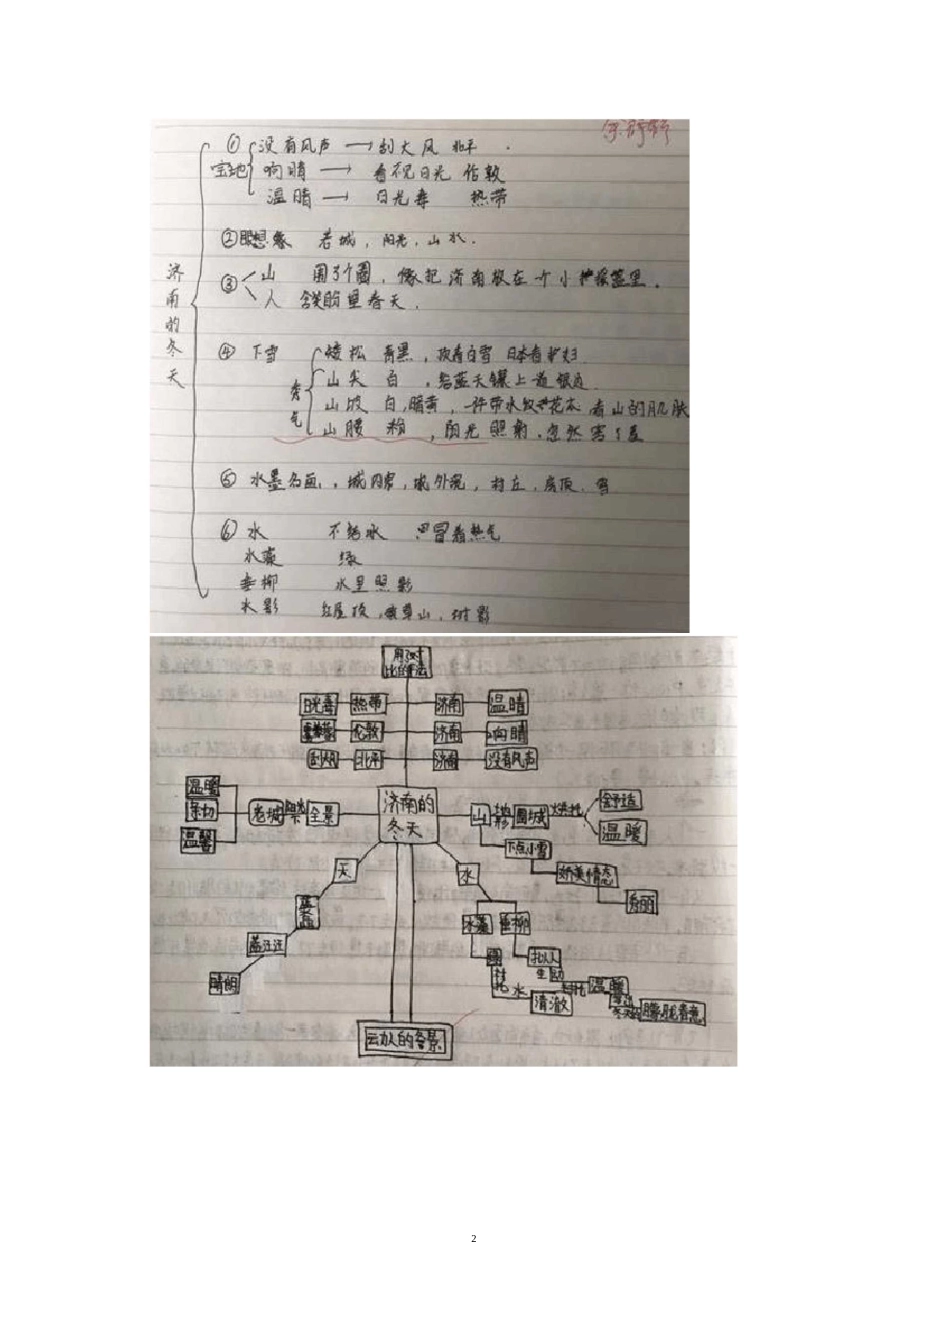 ① 没有风声 → 刮大风 北平
宝地 响晴 → 看不见日光 伦敦
温晴 → 日光毒 热带
② 联想象 老城，阳光，山水．
济南的冬天
③ 山 围了个圈，像把济南放在一个小摇篮里．
人 含笑 春天．
④ 下雪 矮松 青黑，顶着白雪 日本看护妇
秀气
山尖 白，给蓝天镶上一道银边
山坡 白，暗黄，一件带水纹花衣 看山的肌肤
山腰 粉，阳光照射，忽然害了羞
⑤ 水墨名画，城内，城外，村庄，房顶．雪
⑥ 水 不结冰 冒着热气
水藻 绿
垂柳 水里照影
水影 屋顶，草山，树影
用对比的手法
日光毒 热带 济南 温晴
伦敦 济南 响晴
刮风 北平 济南 没有风声
温暖
亲切
温馨
老城 全景
济南的冬天
山 围城 烘托 舒适
温暖
下点小雪
娇美情态
秀丽
天
蓝汪汪
晴朗
水
水藻 垂柳
拟人
生动
衬托 水 清澈
衬托 温暖
朦胧春意
的冬景
2